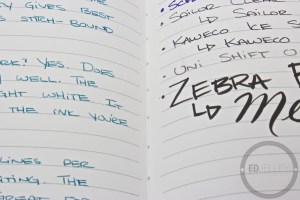 TY GIVES BEST
STITCH-BOUND
RK? YES. DOES
Y WELL. THE
GHT WHITE IS
THE INK YOU'RE
LINES PER
TING. THE
SAILOR CLEAR
↳ SAILOR
KAWECO ICE S
↳ KAWECO
UNI SHIFT U
ZEBRA
↳ Me